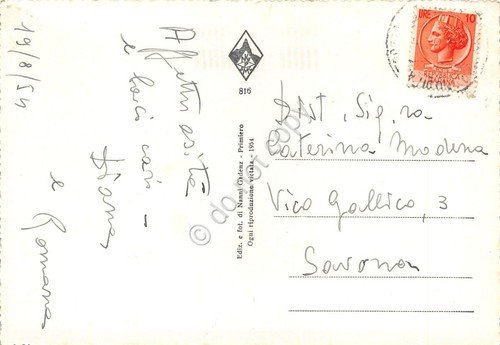 19/8/54
Affettuosità
e baci cari -
Diana
e Romana
816
Ediz. e fot. di Nanni Gadenz - Primiero
Ogni riproduzione vietata - 1954
10
Dist. Sig.ra
Caterina Modena
Vico Gallico, 3
Savona
do not copy